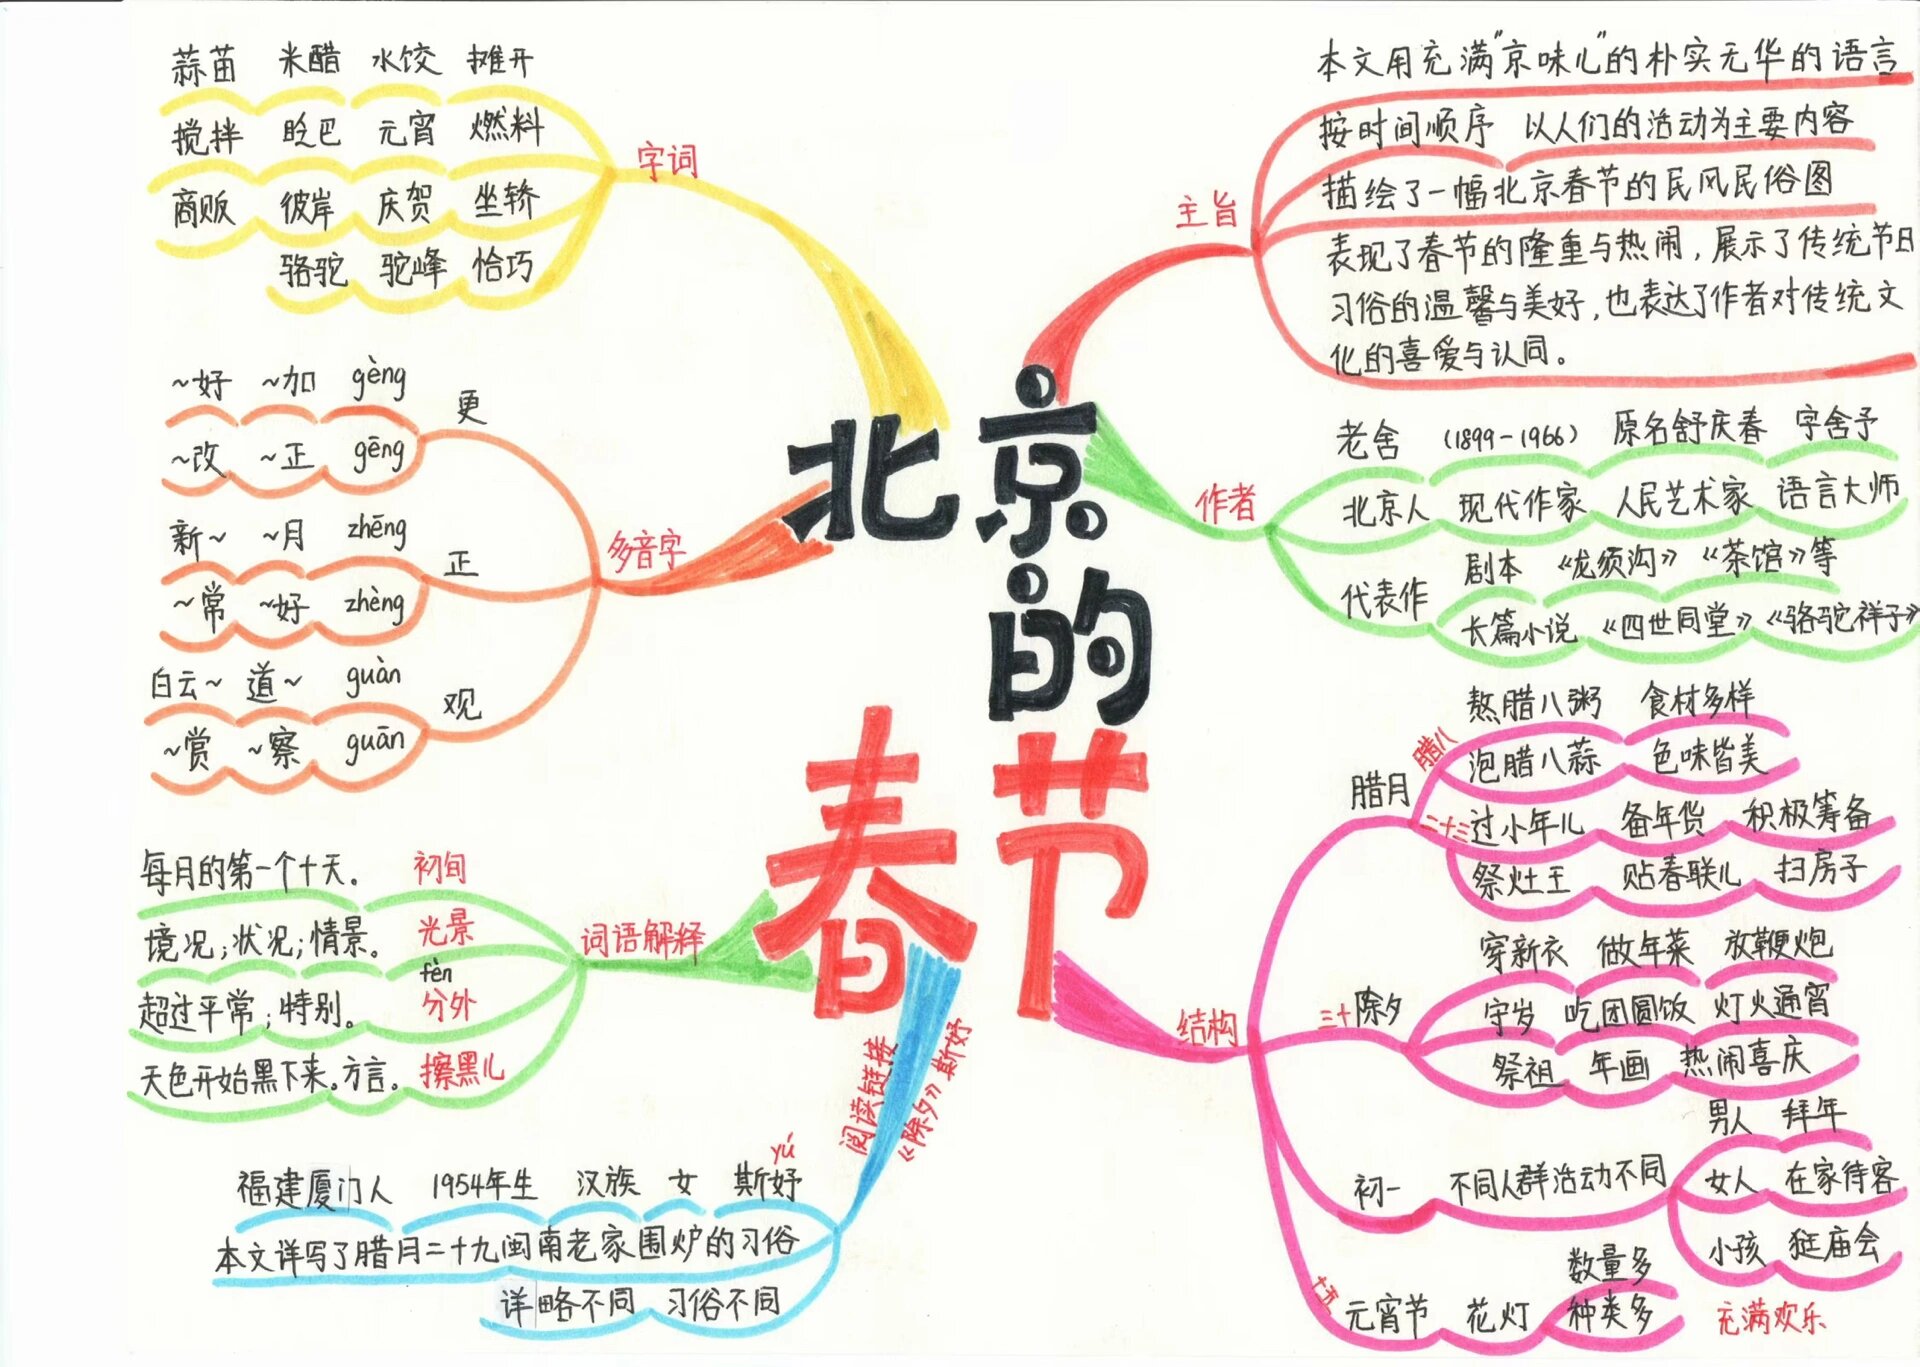 北京的
春节
字词
蒜苗 米醋 水饺 摊开
搅拌 眨巴 元宵 燃料
商贩 彼岸 庆贺 坐轿
骆驼 驼峰 恰巧
多音字
更
~好 ~加 gèng
~改 ~正 gēng
正
新~ ~月 zhēng
~常 ~好 zhèng
观
白云~ 道~ guàn
~赏 ~察 guān
词语解释
每月的第一个十天。 初旬
境况;状况;情景。 光景
fèn
超过平常;特别。 分外
天色开始黑下来。方言。 擦黑儿
阅读链接
《除夕》斯妤
yú
福建厦门人 1954年生 汉族 女 斯妤
本文详写了腊月二十九闽南老家围炉的习俗
详略不同 习俗不同
主旨
本文用充满"京味儿"的朴实无华的语言
按时间顺序 以人们的活动为主要内容
描绘了一幅北京春节的民风民俗图
表现了春节的隆重与热闹,展示了传统节日
习俗的温馨与美好,也表达了作者对传统文
化的喜爱与认同。
作者
老舍 (1899-1966) 原名舒庆春 字舍予
北京人 现代作家 人民艺术家 语言大师
代表作
剧本 《龙须沟》 《茶馆》等
长篇小说 《四世同堂》 《骆驼祥子》
结构
腊月
腊八
熬腊八粥 食材多样
泡腊八蒜 色味皆美
二十三
过小年儿 备年货 积极筹备
祭灶王 贴春联儿 扫房子
三十 除夕
穿新衣 做年菜 放鞭炮
守岁 吃团圆饭 灯火通宵
祭祖 年画 热闹喜庆
初一 不同人群活动不同
男人 拜年
女人 在家待客
小孩 逛庙会
十五
元宵节 花灯
数量多
种类多
充满欢乐